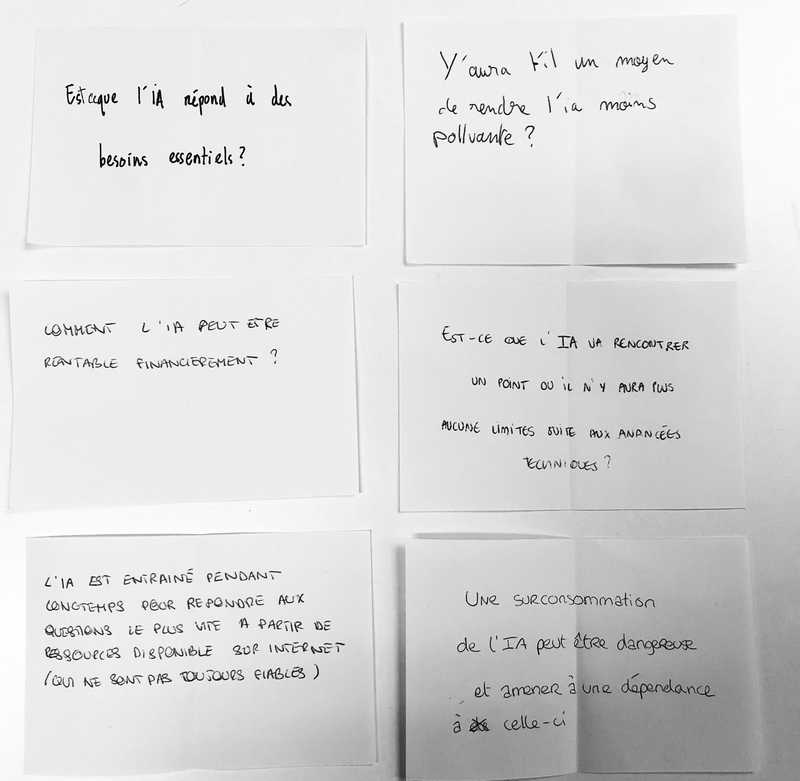 Estceque l'iA répond à des
besoins essentiels?
Y'aura t'il un moyen
de rendre l'ia moins
polluante ?
COMMENT L'IA PEUT ETRE
RENTABLE FINANCIEREMENT ?
EST-CE QUE L'IA VA RENCONTRER
UN POINT OU iL N'Y AURA PLUS
AUCUNE LIMITES SUITE AUX AVANCÉES
TECHNIQUES ?
L'IA EST ENTRAINÉ PENDANT
LONGTEMPS POUR REPONDRE AUX
QUESTIONS LE PLUS VITE A PARTIR DE
RESSOURCES DISPONIBLE SUR INTERNET
(QUI NE SONT PAS TOUJOURS FIABLES)
Une surconsommation
de l'IA peut être dangereuse
et amener à une dépendance
à celle-ci